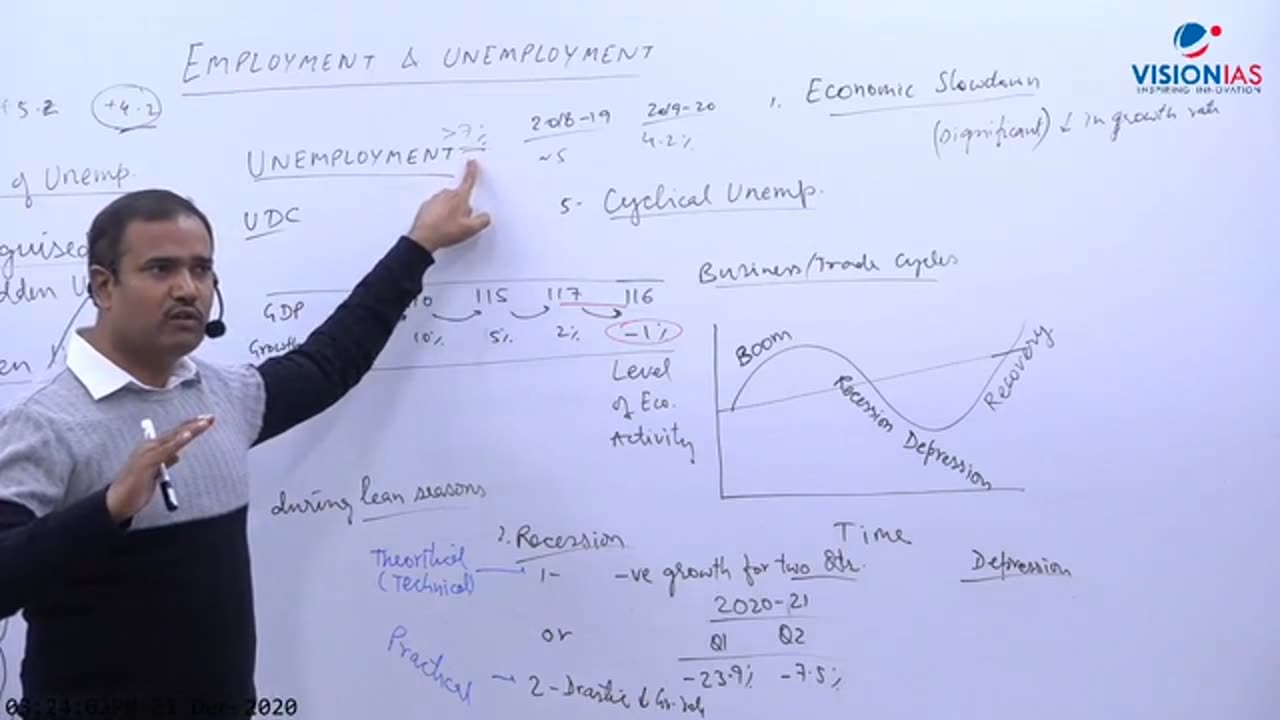 VISIONIAS
INSPIRING INNOVATION
EMPLOYMENT & UNEMPLOYMENT
+5.2 +4.2
of Unemp.
>7%
UNEMPLOYMENT
2018-19 2019-20
~5 4.2%
1. Economic Slowdown
(significant) ↓ in growth rate
UDC
5. Cyclical Unemp.
Business/Trade Cycles
GDP 115 117 116
Growth 10% 5% 2% -1%
Level
of Eco.
Activity
Boom
Recession Depression
Recovery
Time
during lean seasons
2. Recession
Theoritical
(Technical)
1- -ve growth for two Qtr.
2020-21
Q1 Q2
-23.9% -7.5%
or
Practical
2-Drastic ↓
Depression
2020